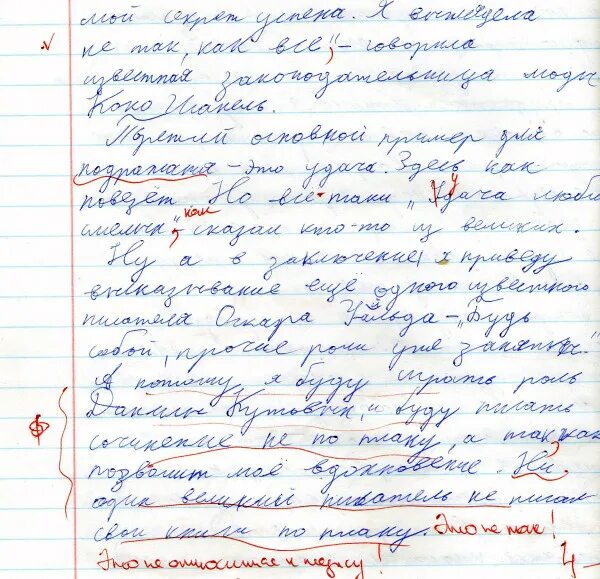 мой секрет успеха. Я выглядела
не так, как все", – говорила
известная законодательница моды
Коко Шанель.
Третий основной пример для
подражания – это удача. Здесь как
повезёт. Но всё-таки „Удача любит
смелых", как сказал кто-то из великих.
Ну а в заключение, я приведу
высказывание ещё одного известного
писателя Оскара Уайльда – „Будь
собой, прочие роли уже заняты."
А потому, я буду играть роль
Данилы, и буду писать
сочинение не по плану, а так, как
позволит моё вдохновение. Ни
один великий писатель не писал
свои книги по плану. Это не так!
Это не относится к тезису! 4–